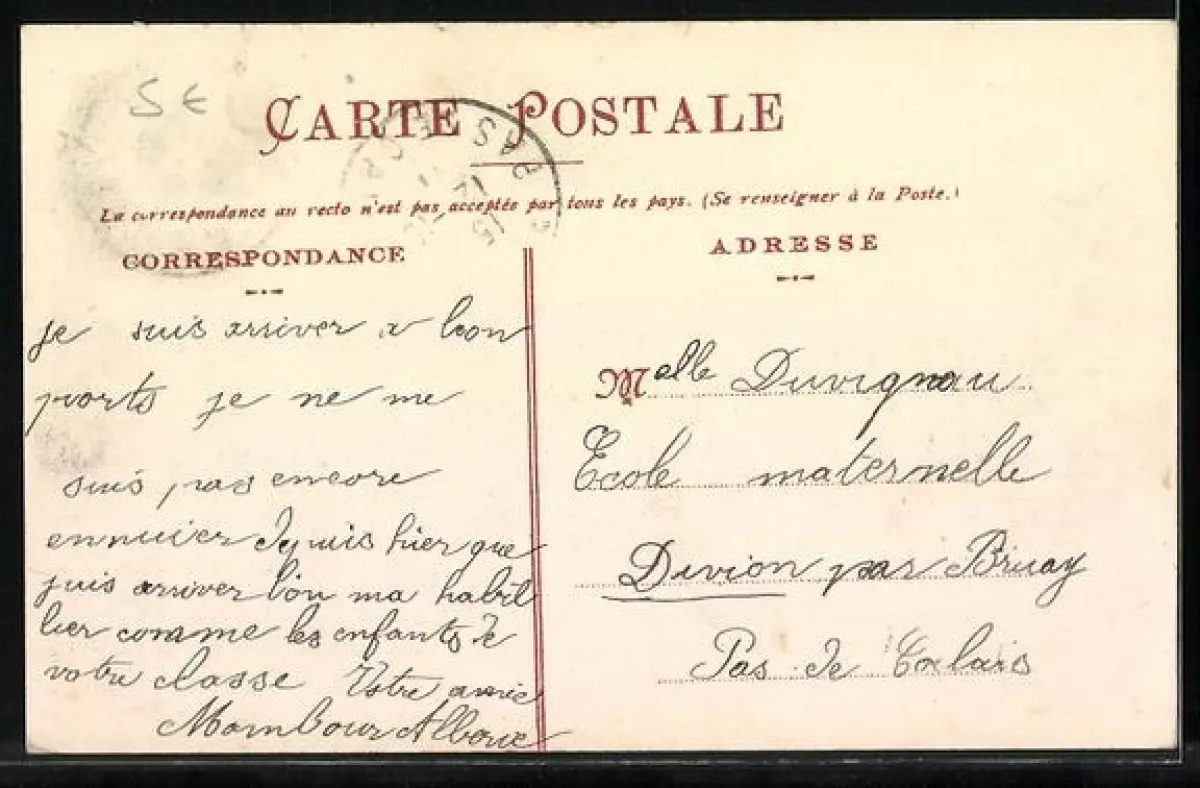 5 €
CARTE POSTALE
La correspondance au recto n'est pas acceptée par tous les pays. (Se renseigner à la Poste.)
CORRESPONDANCE
je suis arriver a bon
ports je ne me
suis pas encore
ennuier depuis hier que
suis arriver l'on ma habil
lier comme les enfants de
votre classe Votre amie
ADRESSE
Melle Duvignau
Ecole maternelle
Divion par Bruay
Pas de Calais
PAS
15
12